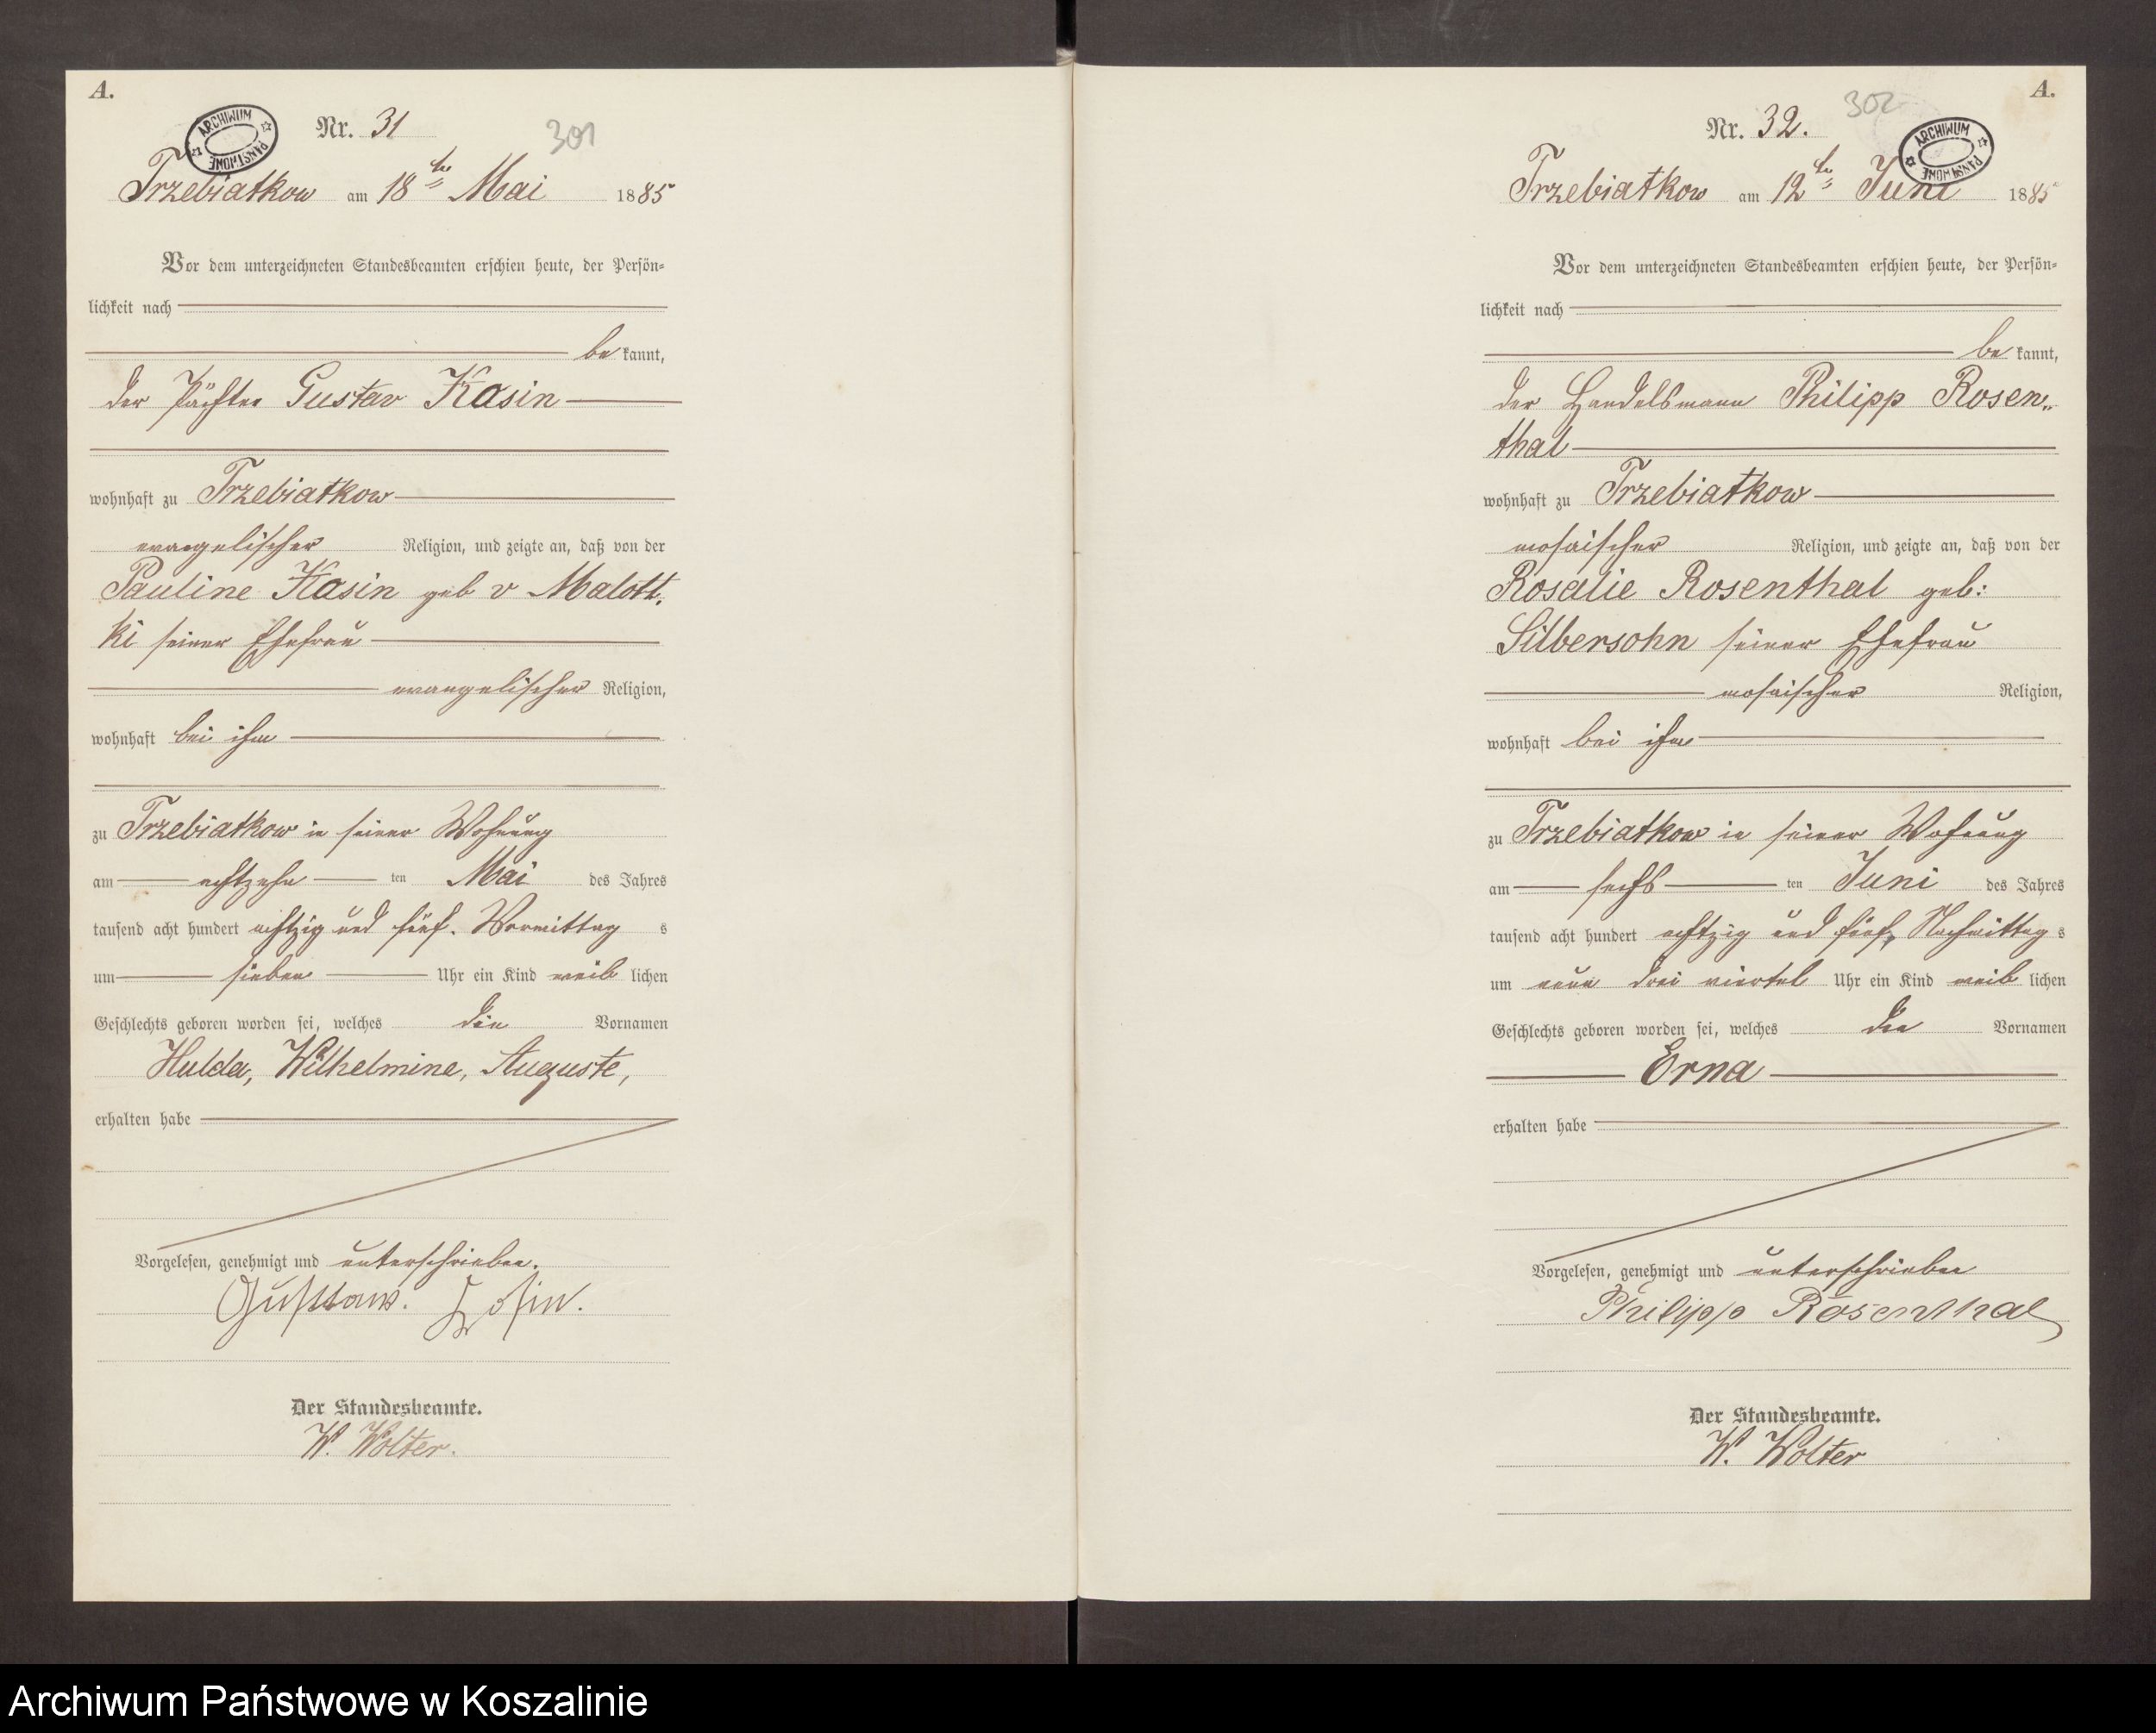 A.
ARCHIWUM PAŃSTWOWE
Nr. 31
301
Trzebiatkow am 18ten Mai 1885
Vor dem unterzeichneten Standesbeamten erschien heute, der Persön-
lichkeit nach
be kannt,
der Pächter Gustav Kosin
wohnhaft zu Trzebiatkow
evangelischer Religion, und zeigte an, daß von der
Pauline Kosin geb v Malott-
ki seiner Ehefrau
evangelischer Religion,
wohnhaft bei ihm
zu Trzebiatkow in seiner Wohnung
am achtzehn ten Mai des Jahres
tausend acht hundert achtzig und fünf. Vormittag s
um sieben Uhr ein Kind weib lichen
Geschlechts geboren worden sei, welches die Vornamen
Hulda, Wilhelmine, Auguste,
erhalten habe
Vorgelesen, genehmigt und unterschrieben.
Gustaw. Kosin.
Der Standesbeamte.
W. Wolter.
A.
Nr. 32.
302
ARCHIWUM PAŃSTWOWE
Trzebiatkow am 12ten Juni 1885
Vor dem unterzeichneten Standesbeamten erschien heute, der Persön-
lichkeit nach
be kannt,
der Handelsmann Philipp Rosen-
thal
wohnhaft zu Trzebiatkow
mosaischer Religion, und zeigte an, daß von der
Rosalie Rosenthal geb:
Silbersohn seiner Ehefrau
mosaischer Religion,
wohnhaft bei ihm
zu Trzebiatkow in seiner Wohnung
am sechs ten Juni des Jahres
tausend acht hundert achtzig und fünf, Nachmittag s
um neun drei viertel Uhr ein Kind weib lichen
Geschlechts geboren worden sei, welches den Vornamen
Erna
erhalten habe
Vorgelesen, genehmigt und unterschrieben
Philipp Rosenthal
Der Standesbeamte.
W. Wolter
Archiwum Państwowe w Koszalinie